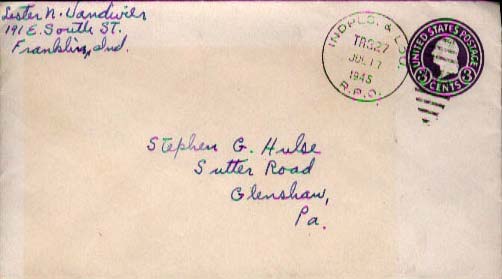 Lester N. Vandivier
191 E. South St.
Franklin, Ind.
INDPLS. & LOU.
TR327
JUL 17
1945
R.P.O.
UNITED STATES POSTAGE
3 CENTS 3
Stephen G. Hulse
Sutter Road
Glenshaw,
Pa.